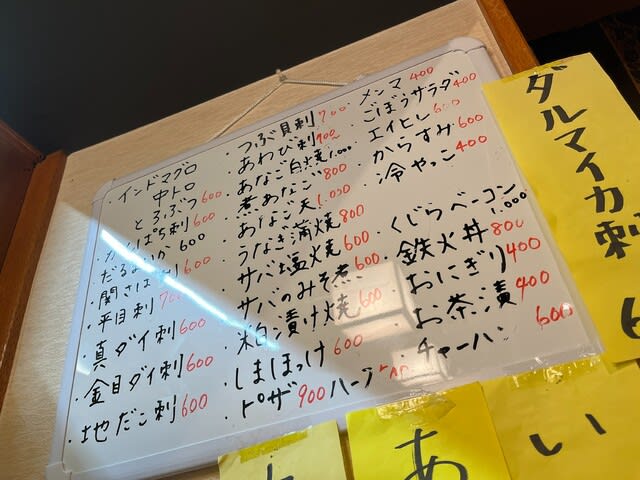 ・インドマグロ
中トロ
とろぶつ 600
・かんぱち刺 600
・だるまいか 600
・関さば刺 600
・平目刺 700
・真ダイ刺 600
・金目ダイ刺 600
・地だこ刺 600
・つぶ貝刺 700
・あわび刺 900
・あなご白焼 1.000
・煮あなご 800
・あなご天 1.000
・うなぎ蒲焼 800
・サバ塩焼 600
・サバのみそ煮 600
・粕漬け焼 600
・しまほっけ 600
・ピザ 900 ハーフ
・メンマ 400
・ごぼうサラダ 400
・エイヒレ 600
・からすみ 600
・冷やっこ 400
・くじらベーコン 1.000
・鉄火丼 800
・おにぎり 400
・お茶漬 400
・チャーハン 600
ダルマイカ刺
あ
い